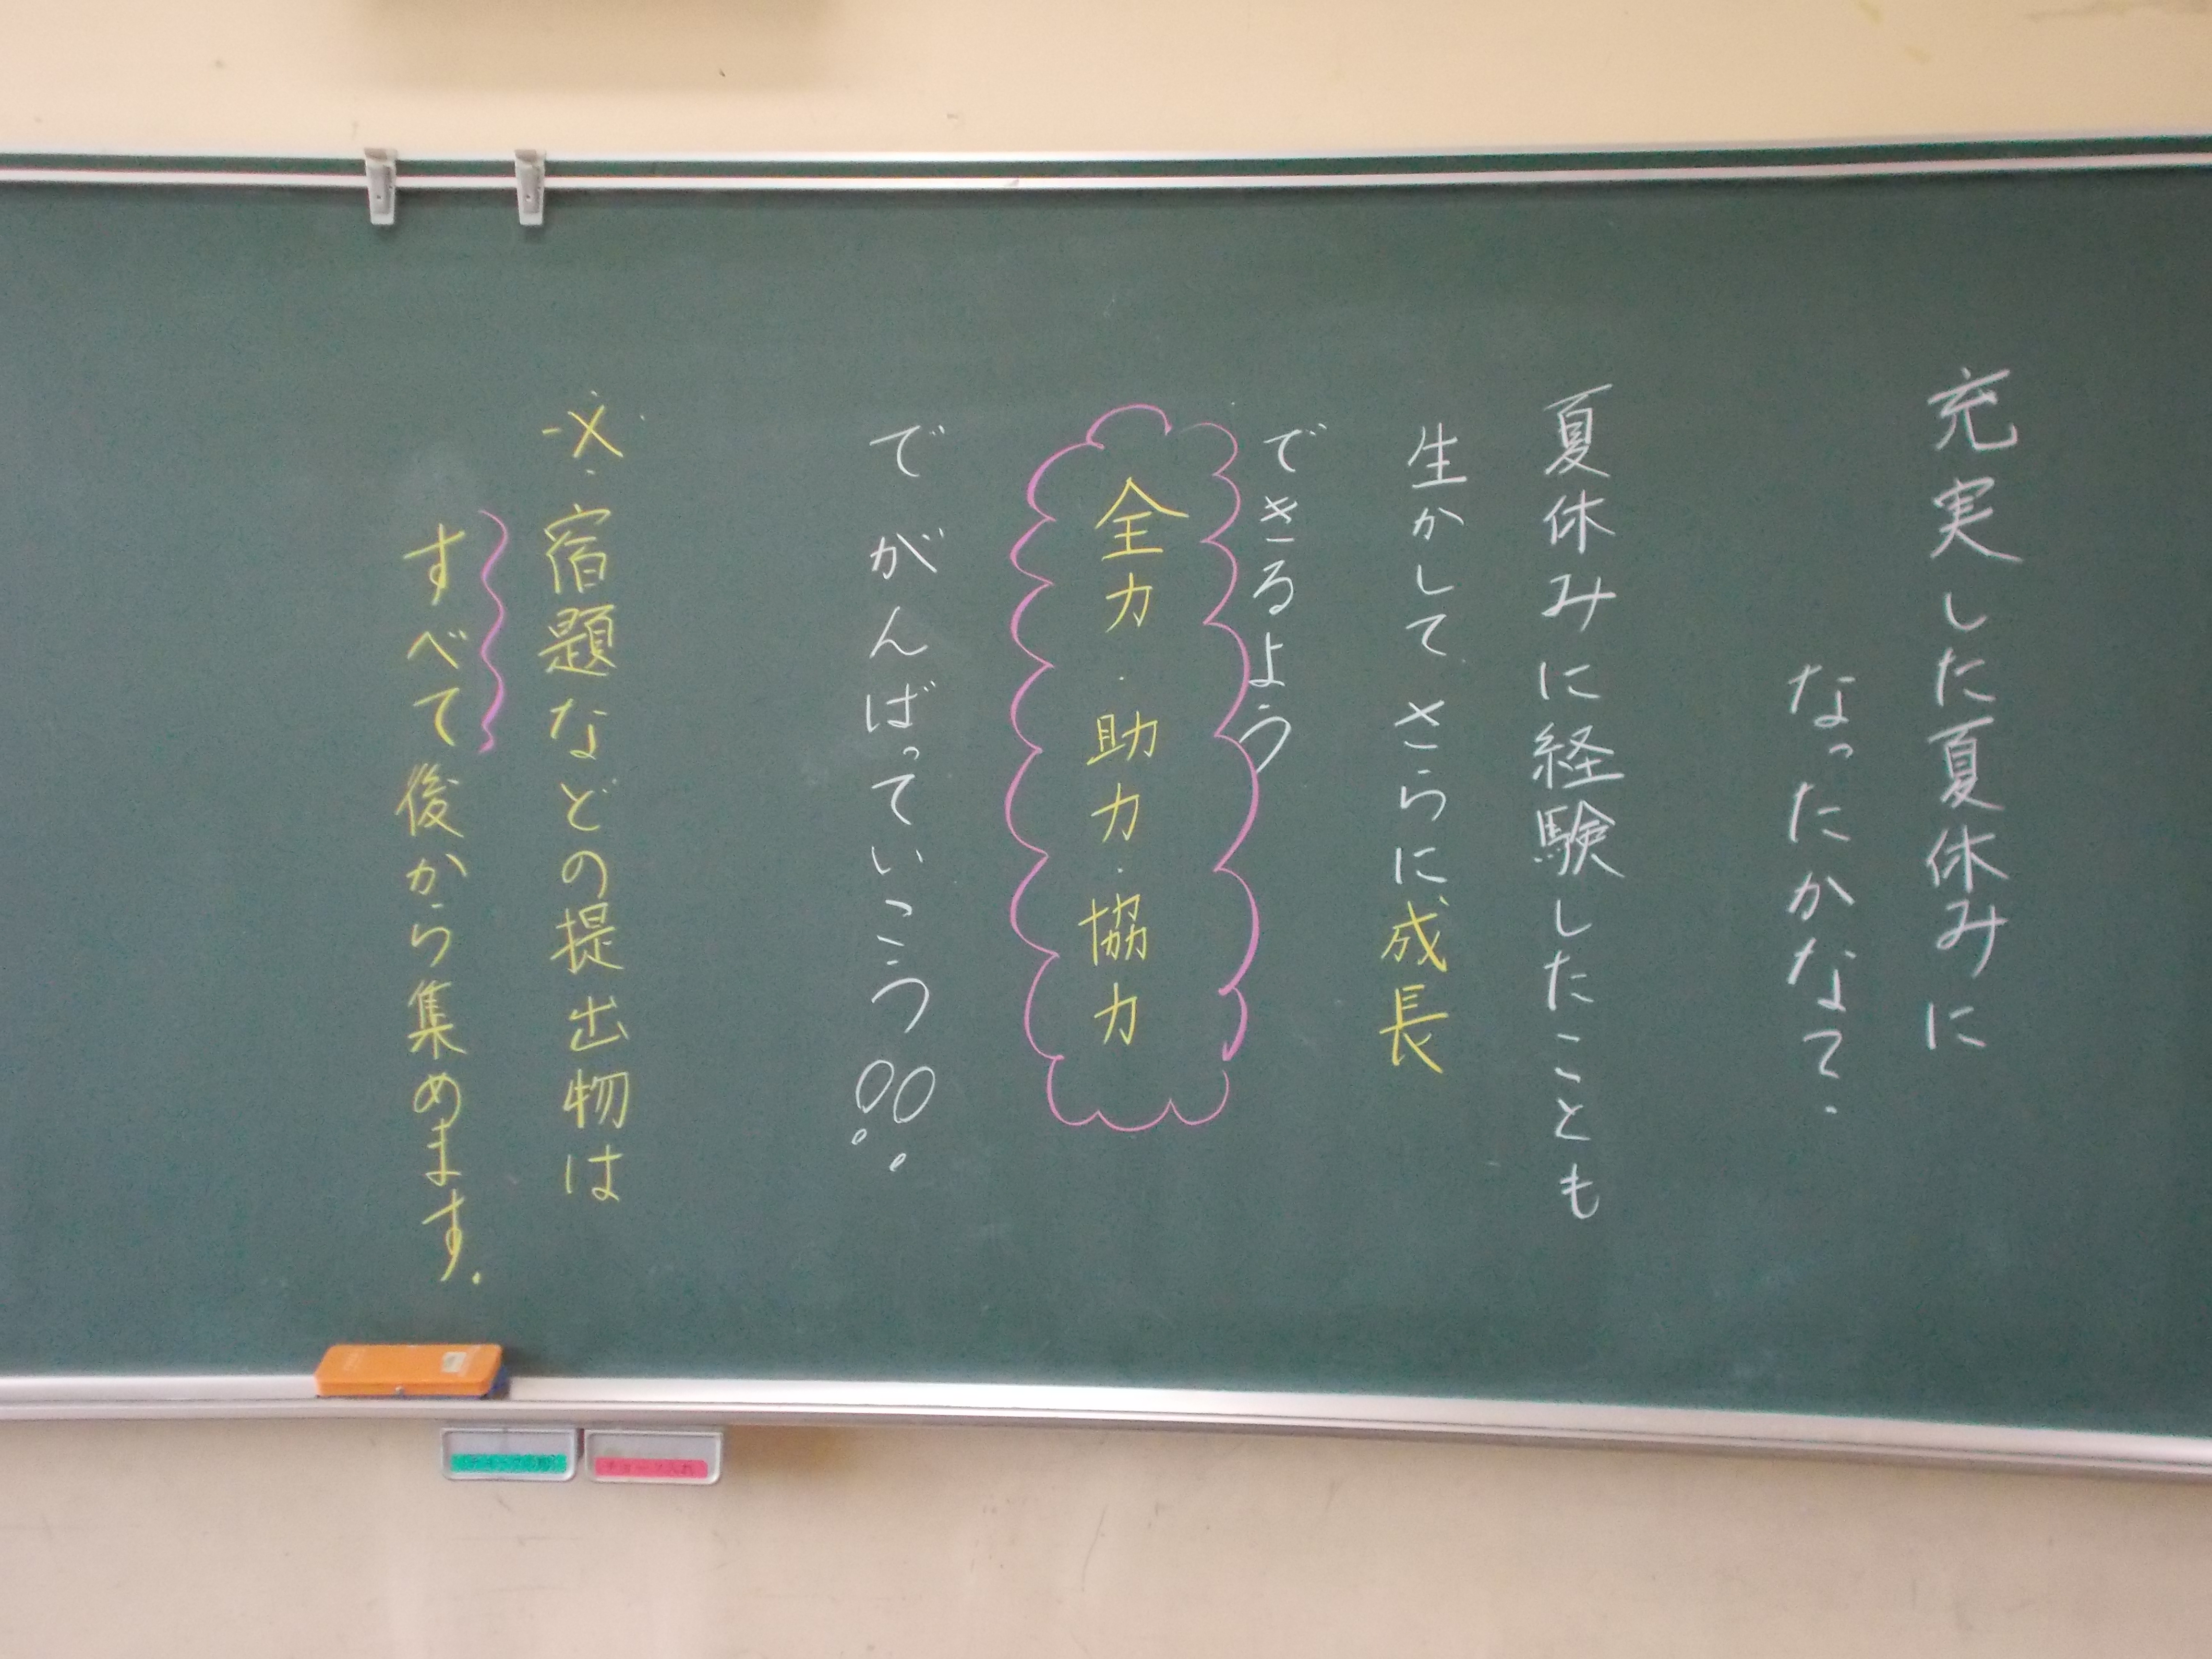 充実した夏休みに
なったかな?
夏休みに経験したことも
生かして さらに成長
できるよう
全力・助力・協力
で がんばっていこう!!
※宿題などの提出物は
すべて後から集めます.
チョーク入れ